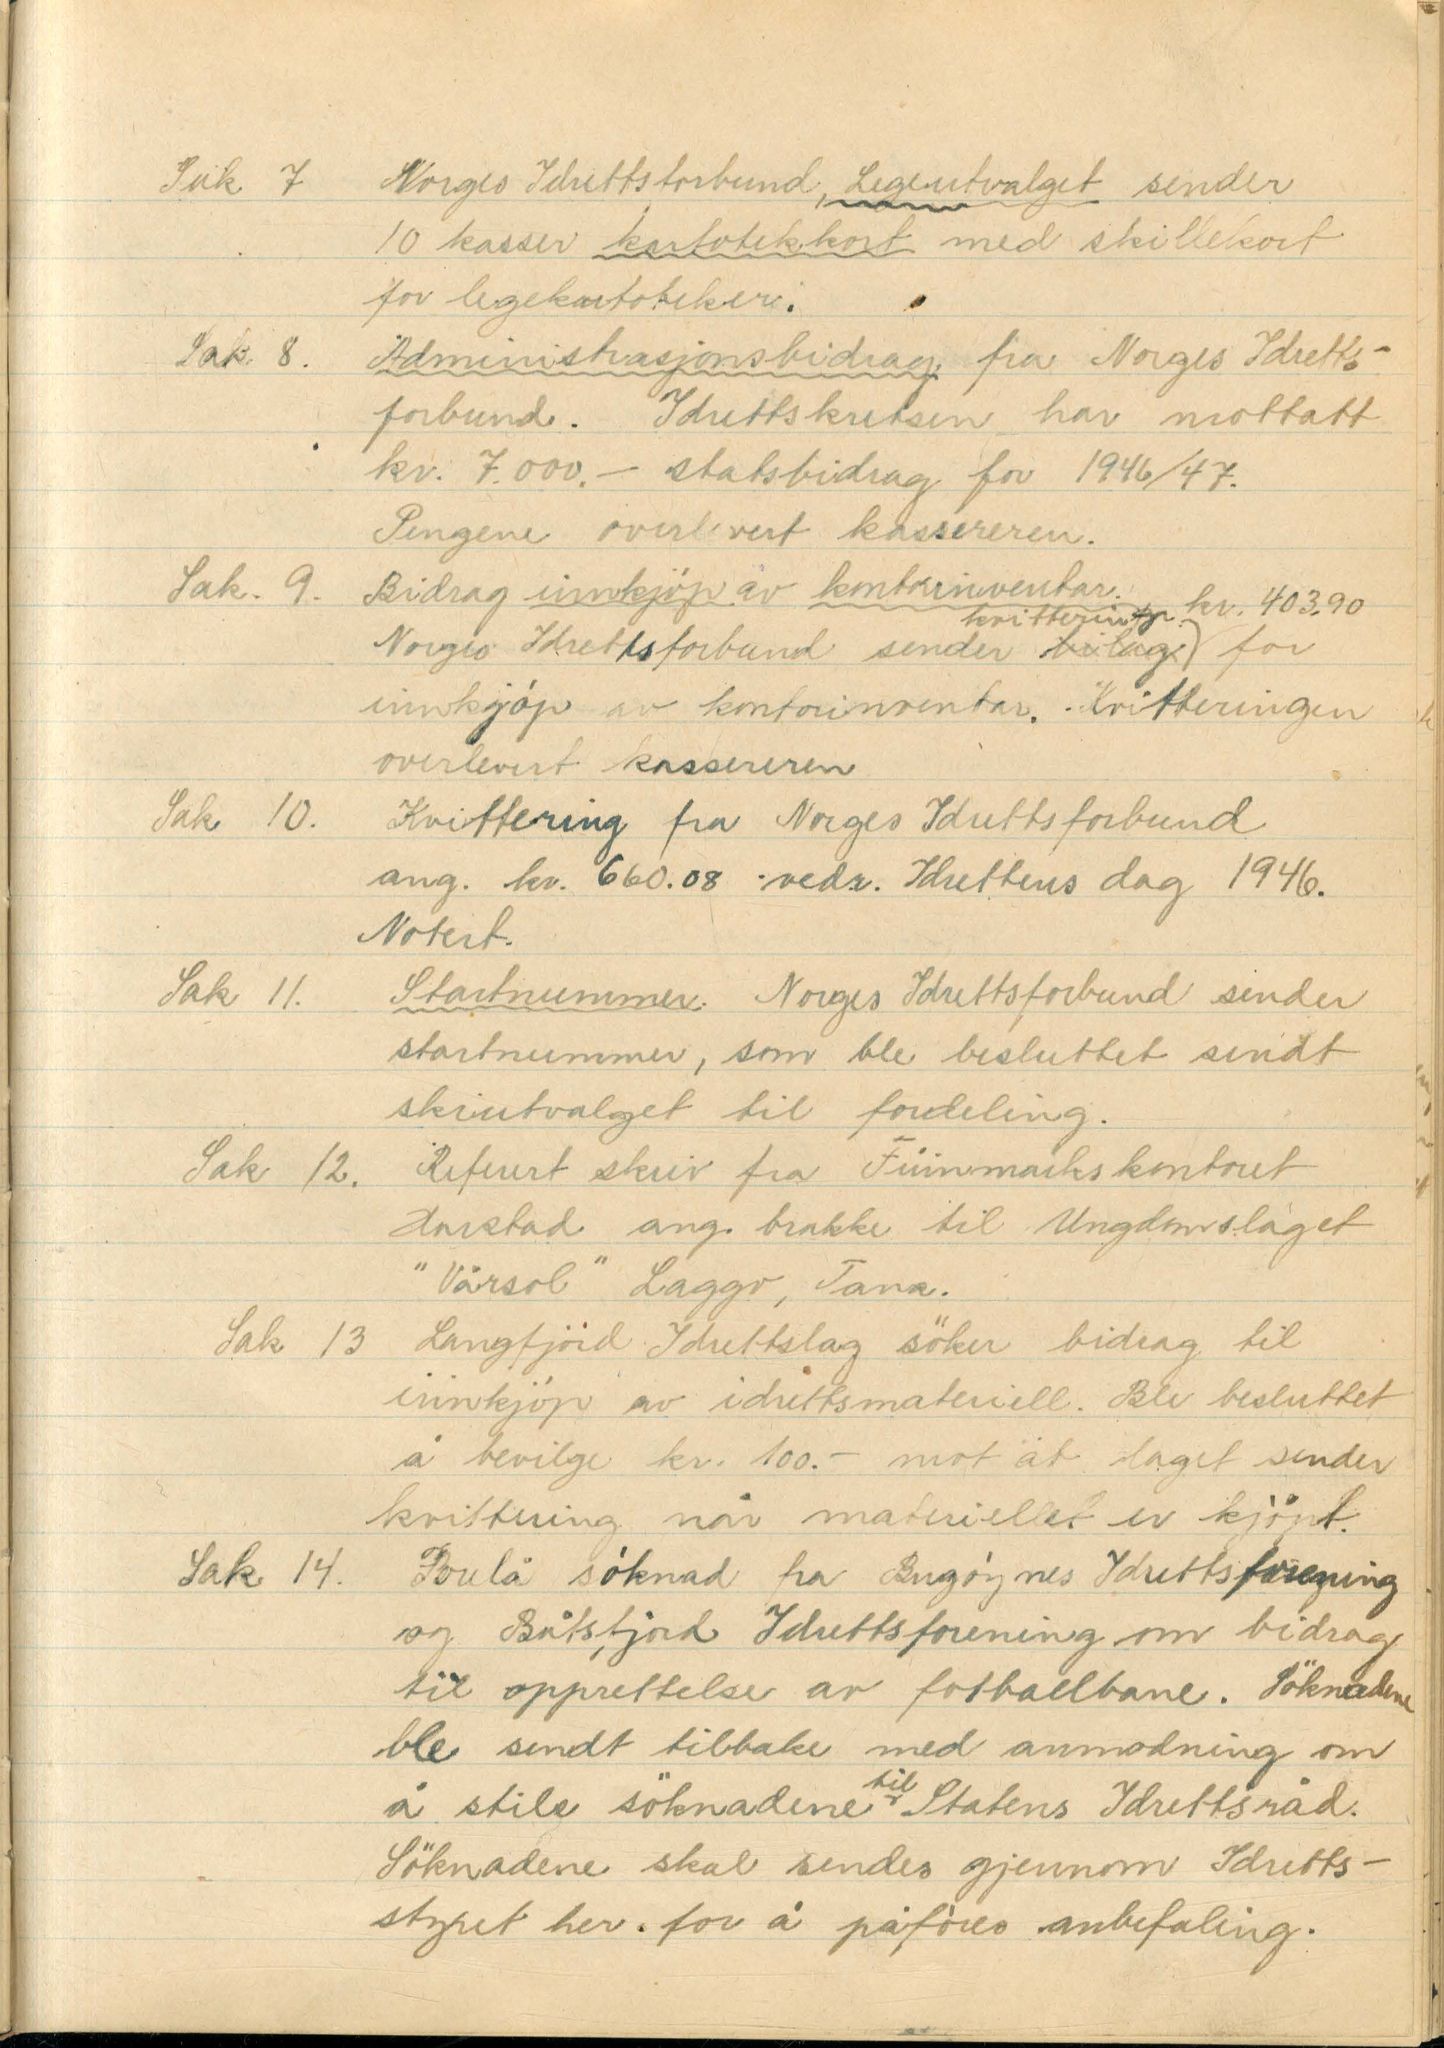 Sak 7 Norges Idrettsforbund, Legeutvalget sender
10 kasser kartotekkort med skillekort
for legekartotekere.
Sak 8. Administrasjonsbidrag fra Norges Idretts-
forbund. Idrettskretsen har mottatt
kr. 7.000.- statsbidrag for 1946/47.
Pengene overlevert kassereren.
Sak. 9. Bidrag innkjöp av kontorinventar.
kvittering kr. 403.90
Norges Idrettsforbund sender bilag) for
innkjöp av kontorinventar. Kvitteringen
overlevert kassereren
Sak 10. Kvittering fra Norges Idrettsforbund
ang. kr. 660.08 vedr. Idrettens dag 1946.
Notert.
Sak 11. Startnummer. Norges Idrettsforbund sender
startnummer, som ble besluttet sendt
skiutvalget til fordeling.
Sak 12. Referert skriv fra Finnmarkskontoret
Harstad ang. brakke til Ungdomslaget
"Vårsol" Laggo, Tana.
Sak 13 Langfjord Idrettslag söker bidrag til
innkjöp av idrettsmateriell. Ble besluttet
å bevilge kr. 100.- mot at laget sender
kvittering når materiellet er kjöpt.
Sak 14. Forelå söknad fra Bugöynes Idrettsforening
og Båtsfjord Idrettsforening om bidrag
til opprettelse av fotballbane. Söknadene
ble sendt tilbake med anmodning om
til
å stile söknadene Statens Idrettsråd.
Söknadene skal sendes gjennom Idretts-
styret her. for å påföres anbefaling.